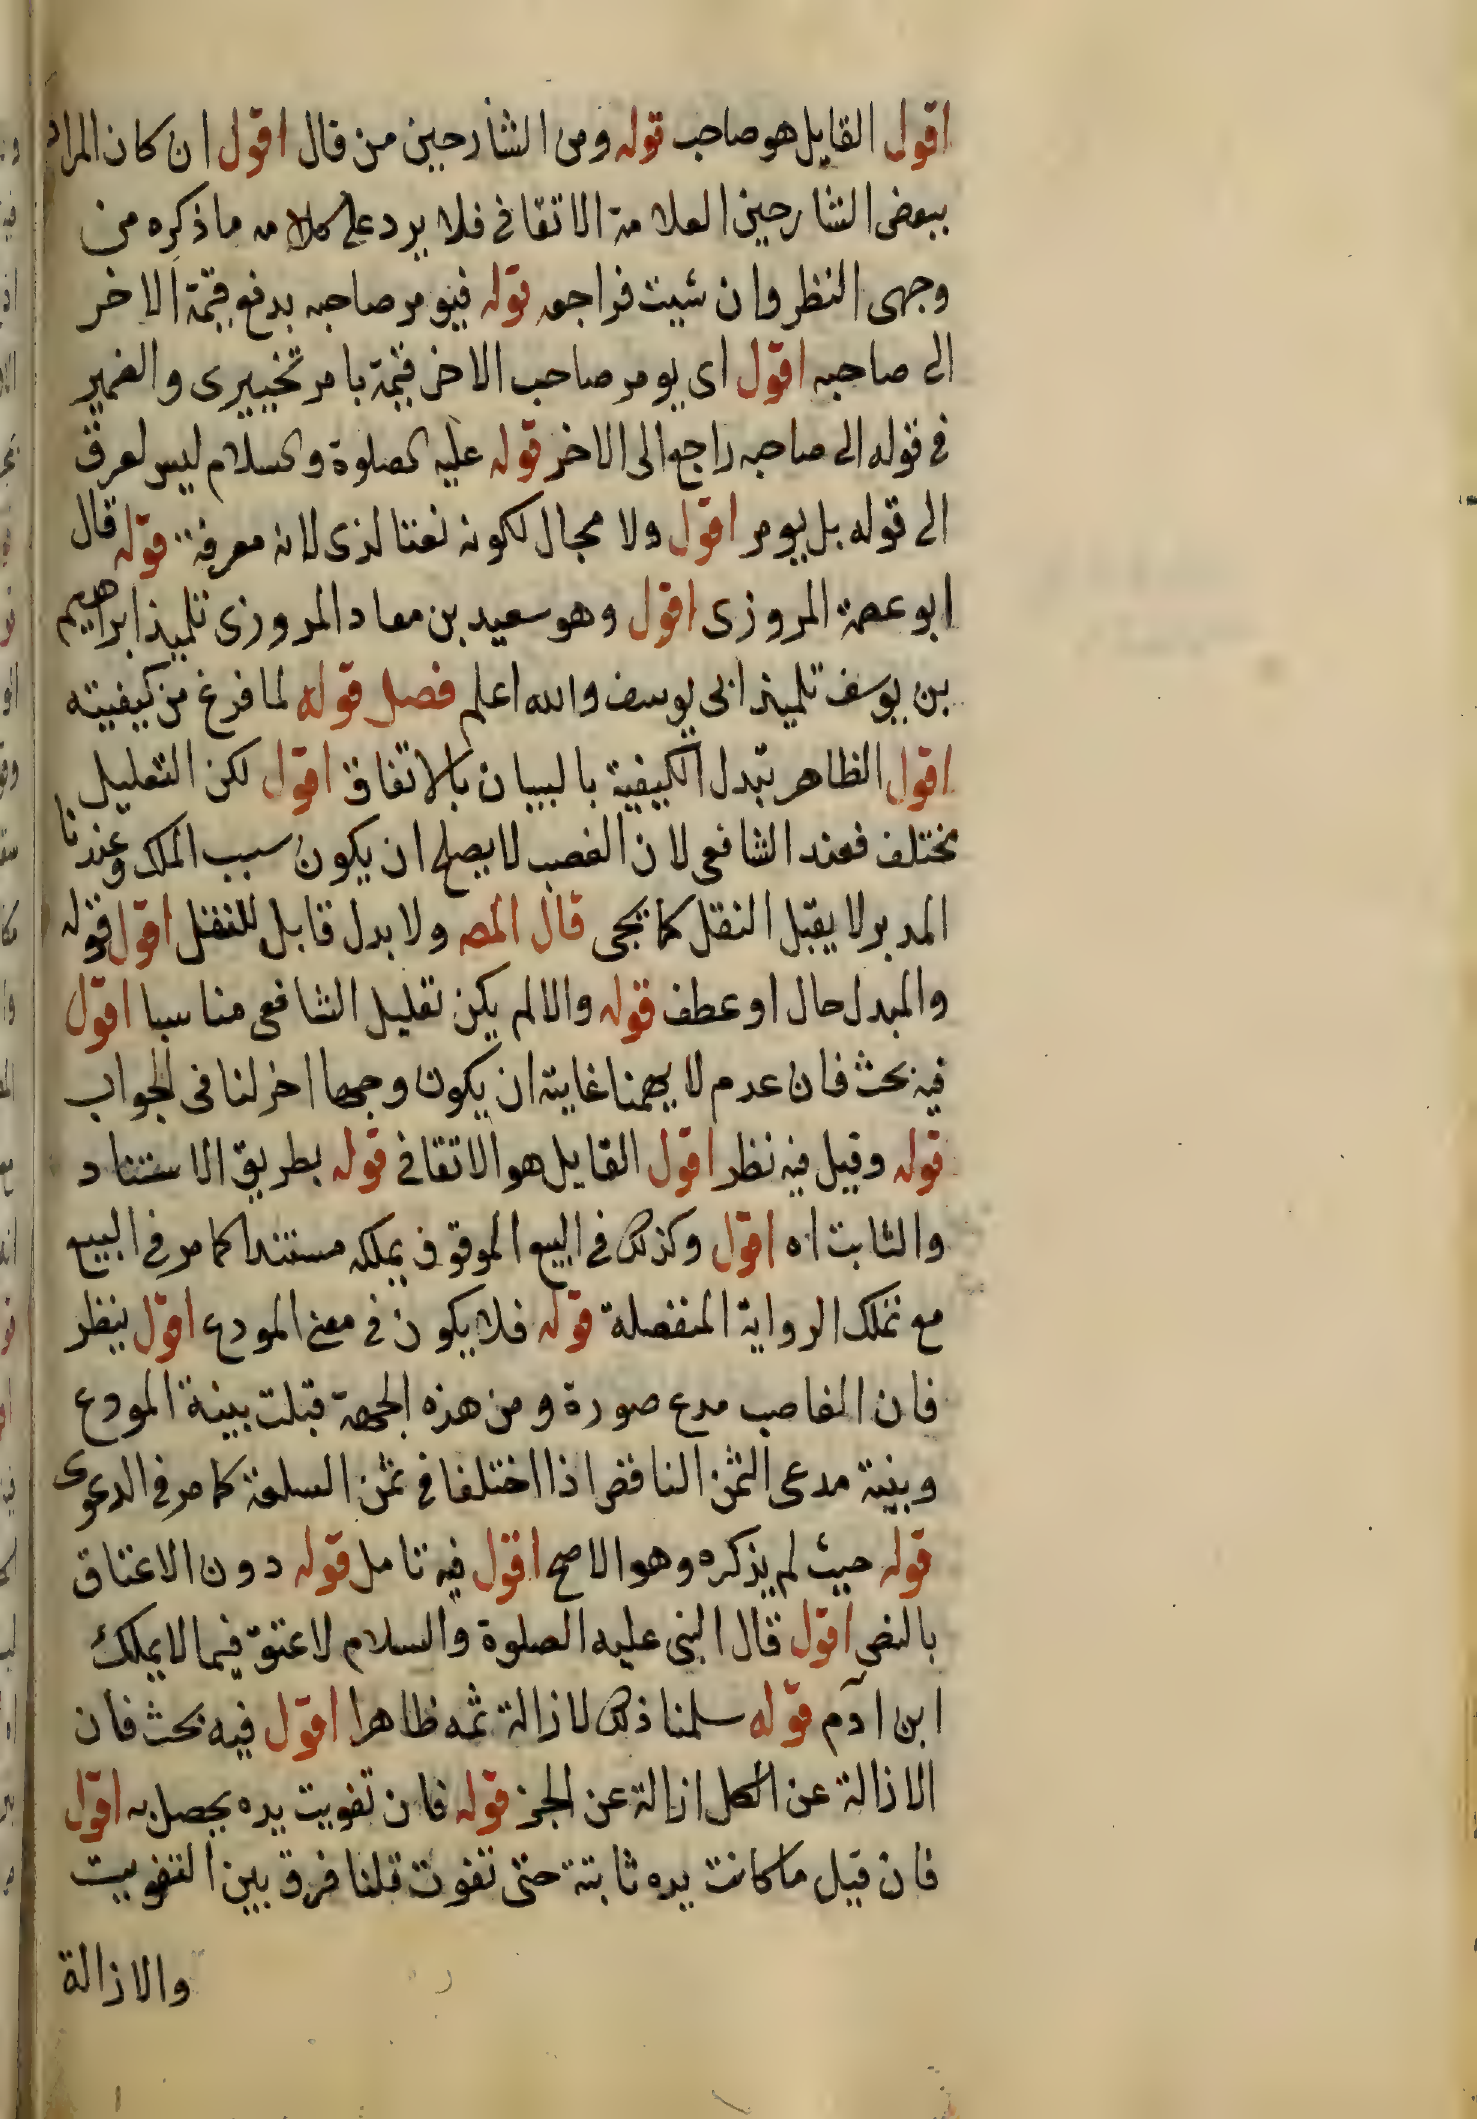 اقول القايل هو صاحب قوله ومن الشارحين من قال اقول ان كان المراد
ببعض الشارحين العلامة الاتقاني فلا يرد على كلامه ما ذكره من
وجهى النظر وان شيت فراجعه قوله فيومر صاحبه بدفع قيمة الاخر
الى صاحبه اقول اى يومر صاحب الاخر قيمة بامر تخييرى والضمير
فى قوله الى صاحبه راجع الى الاخر قوله عليه الصلوة والسلام ليس لعرق
الى قوله بل يومر اقول ولا مجال لكونه نعتا لذى لانه معرفة قوله قال
ابو عصمة المروزى اقول وهو سعيد بن معاد المروزى تلميذ ابراهيم
بن يوسف تلميذ ابى يوسف والله اعلم فصل قوله لما فرغ من كيفيته
اقول الظاهر تبدل الكيفية بالبيان بالاتفاق اقول لكن التعليل
مختلف فعند الشافعى لان الغصب لا يصلح ان يكون سبب الملك وعندنا
المدبر لا يقبل النقل كما يجى قال المص ولا بدل قابل للنقل اقول قوله
والمبدل حال او عطف قوله والا لم يكن تعليل الشافعى مناسبا اقول
فيه بحث فان عدم لا يهمنا غايته ان يكون وجها اخر لنا فى الجواب
قوله وقيل فيه نظر اقول القايل هو الاتقانى قوله بطريق الاستناد
والثابت اه اقول وكذلك فى البيع الموقوف يملكه مستندا كما مر فى البيع
مع تملك الرواية المنفصلة قوله فلا يكون فى معنى المودع اقول ينظر
فان الغاصب مدع صورة ومن هذه الجهة قبلت بينة المودع
وبينة مدعى الثمن الناقص اذا اختلفا فى ثمن السلعة كما مر فى الدعوى
قوله حيث لم يذكره وهو الاصح اقول فيه تامل قوله دون الاعتاق
بالنص اقول قال النبى عليه الصلوة والسلام لا عتق فيما لا يملك
ابن آدم قوله سلمنا ذلك لازالة ثمه ظاهرا اقول فيه بحث فان
الازالة عن الكل ازالة عن الجز قوله فان تفويت يده يحصل به اقول
فان قيل ما كانت يده ثابتة حتى تفوت قلنا فرق بين التفويت
والازالة